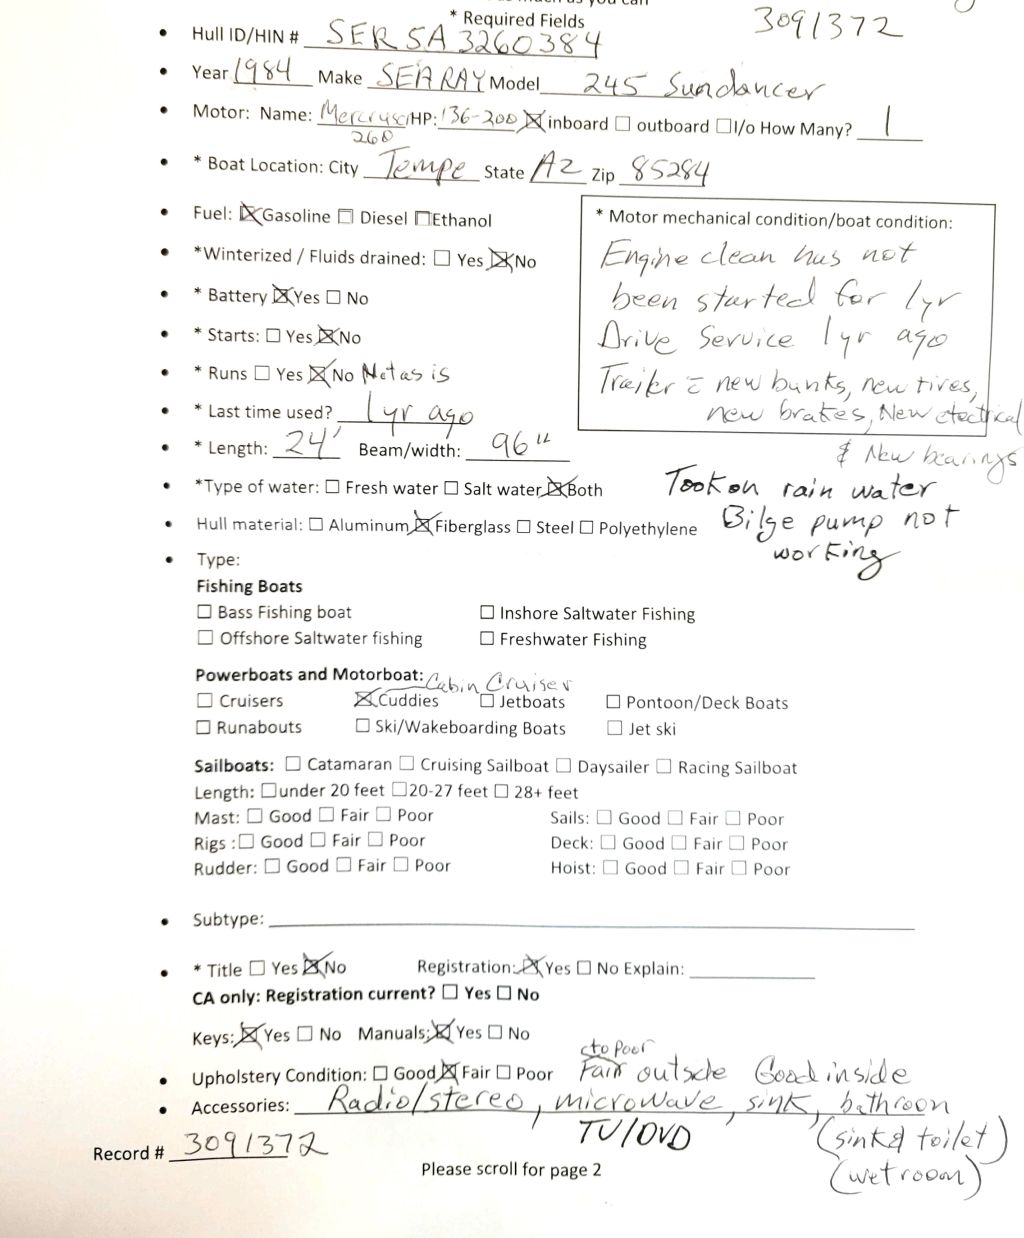 * Required Fields
3091372
• Hull ID/HIN # SER5A3260384
• Year 1984 Make SEARAY Model 245 Sundancer
• Motor: Name: Mercrusi HP: 136-200 ☒ inboard ☐ outboard ☐ I/o How Many? 1
260
• * Boat Location: City Tempe State AZ Zip 85284
• Fuel: ☒ Gasoline ☐ Diesel ☐ Ethanol
• *Winterized / Fluids drained: ☐ Yes ☒ No
• * Battery ☒ Yes ☐ No
• * Starts: ☐ Yes ☒ No
• * Runs ☐ Yes ☒ No Not as is
• * Last time used? 1 yr ago
• * Length: 24' Beam/width: 96"
* Motor mechanical condition/boat condition:
Engine clean has not
been started for 1yr
Drive Service 1 yr ago
Trailer = new bunks, new tires,
new brakes, New electrical
& New bearings
• *Type of water: ☐ Fresh water ☐ Salt water ☒ Both
• Hull material: ☐ Aluminum ☒ Fiberglass ☐ Steel ☐ Polyethylene
Took on rain water
Bilge pump not
working
• Type:
Fishing Boats
☐ Bass Fishing boat ☐ Inshore Saltwater Fishing
☐ Offshore Saltwater fishing ☐ Freshwater Fishing
Powerboats and Motorboat: Cabin Cruiser
☐ Cruisers ☒ Cuddies ☐ Jetboats ☐ Pontoon/Deck Boats
☐ Runabouts ☐ Ski/Wakeboarding Boats ☐ Jet ski
Sailboats: ☐ Catamaran ☐ Cruising Sailboat ☐ Daysailer ☐ Racing Sailboat
Length: ☐ under 20 feet ☐ 20-27 feet ☐ 28+ feet
Mast: ☐ Good ☐ Fair ☐ Poor Sails: ☐ Good ☐ Fair ☐ Poor
Rigs : ☐ Good ☐ Fair ☐ Poor Deck: ☐ Good ☐ Fair ☐ Poor
Rudder: ☐ Good ☐ Fair ☐ Poor Hoist: ☐ Good ☐ Fair ☐ Poor
• Subtype:
• * Title ☐ Yes ☒ No Registration: ☒ Yes ☐ No Explain:
CA only: Registration current? ☐ Yes ☐ No
Keys: ☒ Yes ☐ No Manuals: ☒ Yes ☐ No
to poor
• Upholstery Condition: ☐ Good ☒ Fair ☐ Poor Fair outside Good inside
• Accessories: Radio/stereo, microwave, sink, bathroon
TV/DVD (sink & toilet)
(wet room)
Record # 3091372
Please scroll for page 2